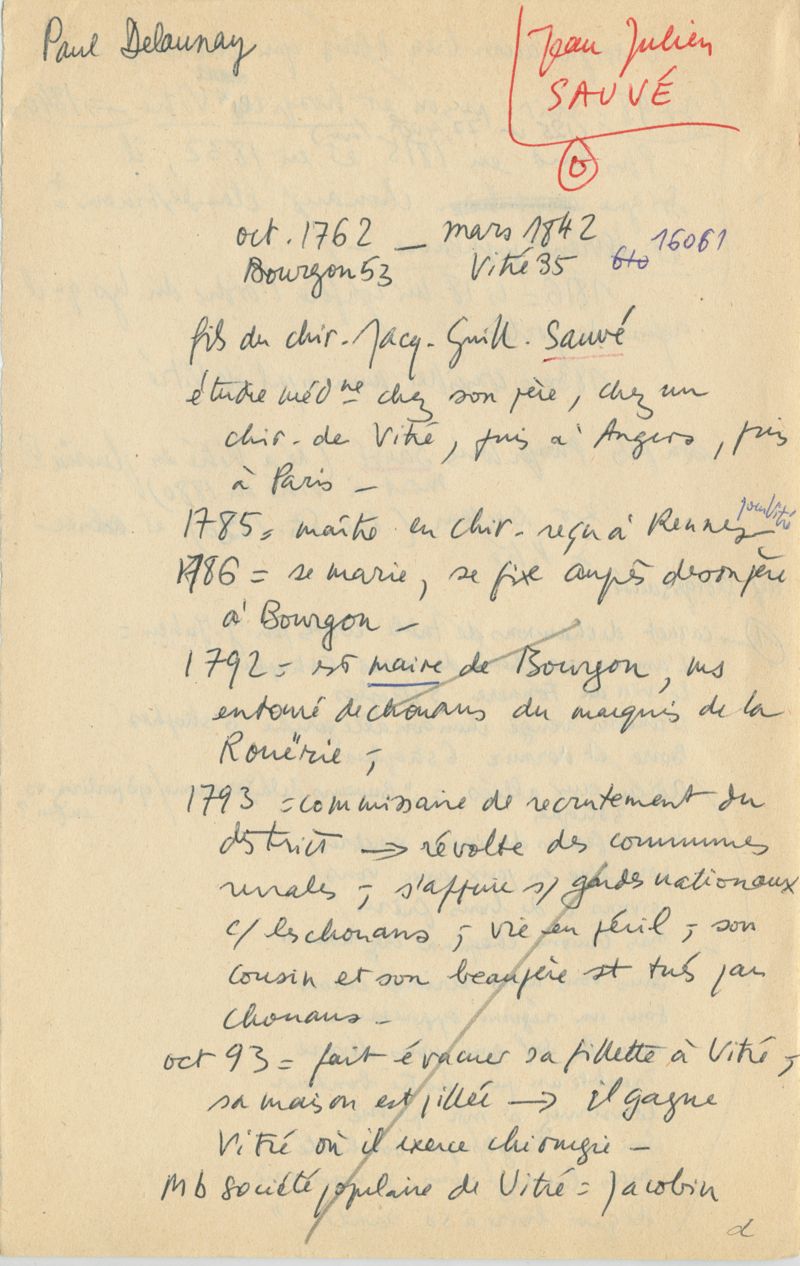 Paul Delaunay
Jean Julien
SAUVÉ
oct. 1762 — mars 1842
Bourgon 53 Vitré 35 16061
fils du chir. Jacq. Guill. Sauvé
étudie médne chez son père, chez un
chir. de Vitré, puis à Angers, puis
à Paris —
1785 = maître en chir. reçu à Rennes pour Vitré
1786 = se marie, se fixe auprès de son père
à Bourgon —
1792 = est maire de Bourgon, ms
entouré de chouans du marquis de la
Rouërie ;
1793 = commissaire de recrutement du
district → révolte des communes
rurales ; s'appuie s/ gardes nationaux
c/ les chouans ; vie en péril ; son
cousin et son beau père st tués par
chouans —
oct 93 = fait évacuer sa fillette à Vitré ;
sa maison est pillée → il gagne
Vitré où il exerce chirurgie —
Mb société populaire de Vitré = Jacobin